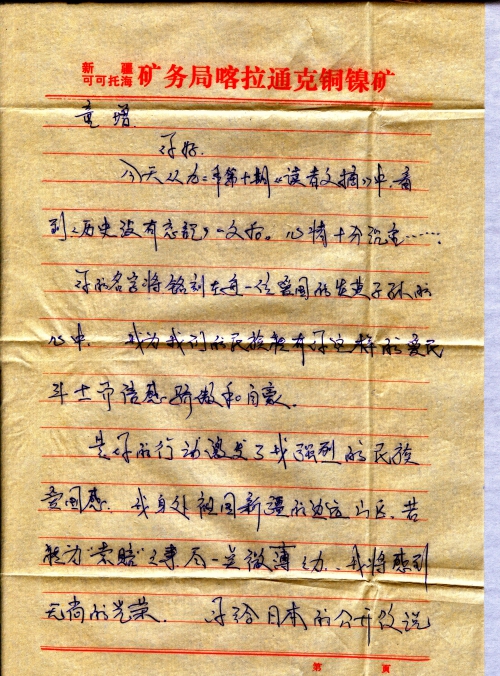 新疆
可可托海 矿务局喀拉通克铜镍矿
童增
你好.
今天从九二年第十期《读者文摘》中,看
到《历史没有忘记》一文后。心情十分沉重……
你的名字将铭刻在每一位爱国的炎黄子孙的
心中. 我为我们的民族能有你这样的爱民
斗士而倍感骄傲和自豪.
是你的行动激发了我强烈的民族
爱国感. 我身处祖国新疆的边远山区,若
能为“索赔”之事尽一点微薄之力、我将感到
无尚的光荣. 你给日本的公开信说
第 页